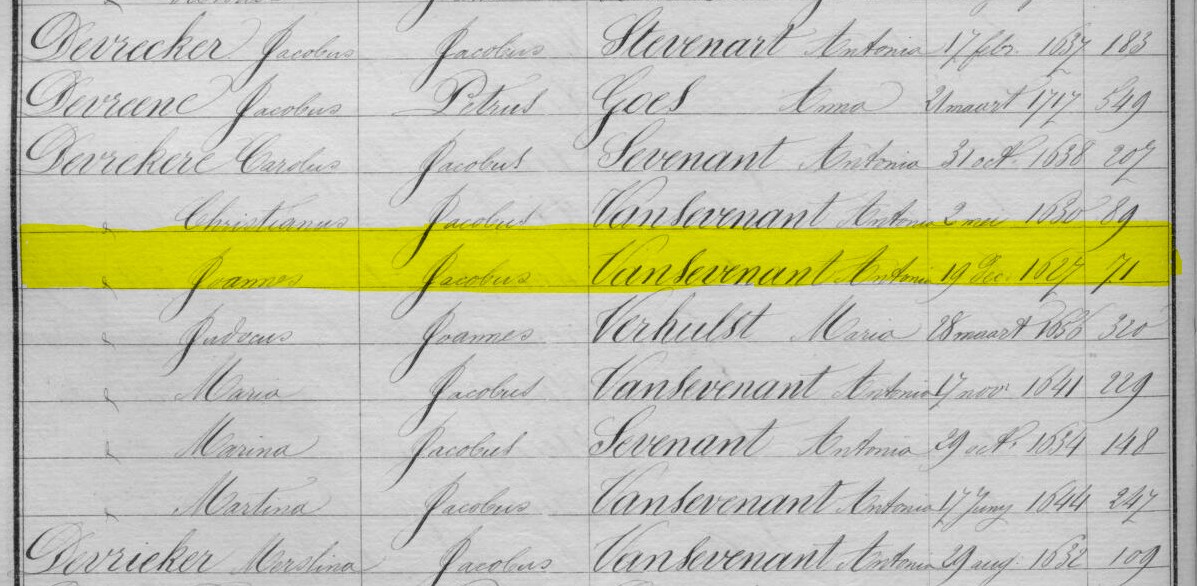 Devrecker Jacobus Jacobus Stevenart Antonia 17 febr. 1637 183
Devrcenc Jacobus Petrus Goes Anna 21 maart 1717 549
Devrekere Carolus Jacobus Sevenant Antonia 31 oct. 1638 207
" Christianus Jacobus Vansevenant Antonia 2 mei 1630 89
" Joannes Jacobus Vansevenant Antonia 19 Dec. 1627 71
" Judocus Joannes Verhulst Maria 28 maart 1656 320
" Maria Jacobus Vansevenant Antonia 17 nov. 1641 229
" Marina Jacobus Sevenant Antonia 29 oct. 1634 148
" Martina Jacobus Vansevenant Antonia 17 Juny 1644 247
Devrieker Jacobus Vansevenant Antonia 29 aug. 1632 109